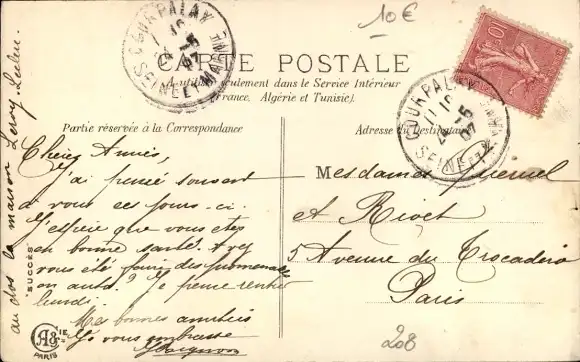 10€
COURPALAY
SEINE ET MARNE
CARTE POSTALE
A utiliser seulement dans le Service Intérieur
(France, Algérie et Tunisie).
10
COURPALAY
SEINE ET MARNE
Partie réservée à la Correspondance
Adresse du Destinataire
Chères Amies,
J'ai pensé souvent
à vous ces jours-ci.
J'espère que vous etes
en bonne santé. Avez
vous été faire des promenades
en auto? Je pense rentrer
lundi.
Mes bonnes amitiés
Je vous embrasse
Mesdames
et Rivet
5 Avenue du Trocadéro
Paris
au dos la maison Leroy
SUCCÈS
PARIS
208